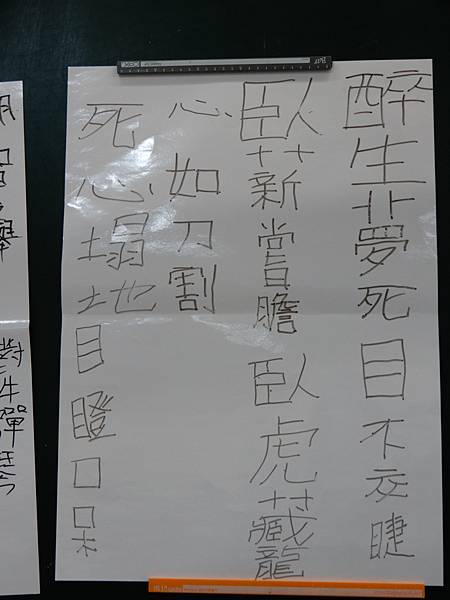 醉生夢死 目不交睫
臥薪嘗膽 臥虎藏龍
心如刀割
死心塌地 目瞪口呆
對牛彈琴